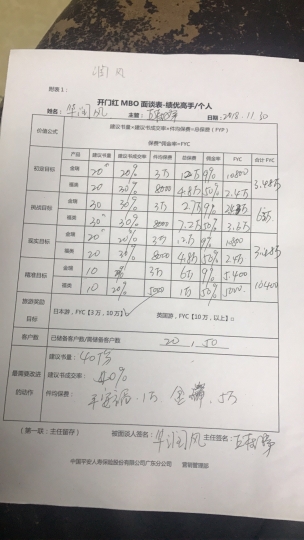 润风
附表1：
开门红 MBO 面谈表-绩优高手/个人
姓名：华润风 主管： 日期：2018.11.30
价值公式 建议书量×建议书成交率×件均保费=总保费（FYP）
保费*佣金率=FYC
产品 建议书量 建议书成交率 件均保费 总保费 佣金率 FYC 合计 FYC
初定目标 金瑞 20 20% 3万 12万 9% 10800
福类 20 30% 8000 4.8万 50% 2.4万 3.48万
挑战目标 金瑞 30 30% 3万 9%
福类 30 30% 8000 7.2万 50% 3.6万 6万
现实目标 金瑞 20 20% 3万 12万 9% 10800
福类 20 30% 8000 4.8万 50% 2.4万 3.48万
精准目标 金瑞 10 3万 6万 9% 5400
福类 10 20% 5000 1万 50% 5000 10400
旅游奖励目标
日本游，FYC【3万，10万） 英国游，FYC【10万，以上】
客户数 已储备客户数/需储备客户数 20、50
最需要改进的动作
建议书量：40份
建议书成交率：40%
件均保费：1万 5万
（第一联：主任留存） 被面谈人签名：华润风 主任签名：
中国平安人寿保险股份有限公司广东分公司 营销管理部